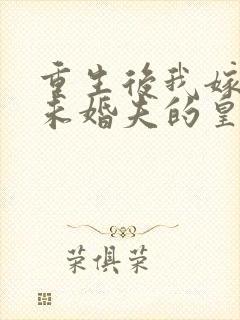 重生後我嫁
未婚夫的皇
荣俱荣